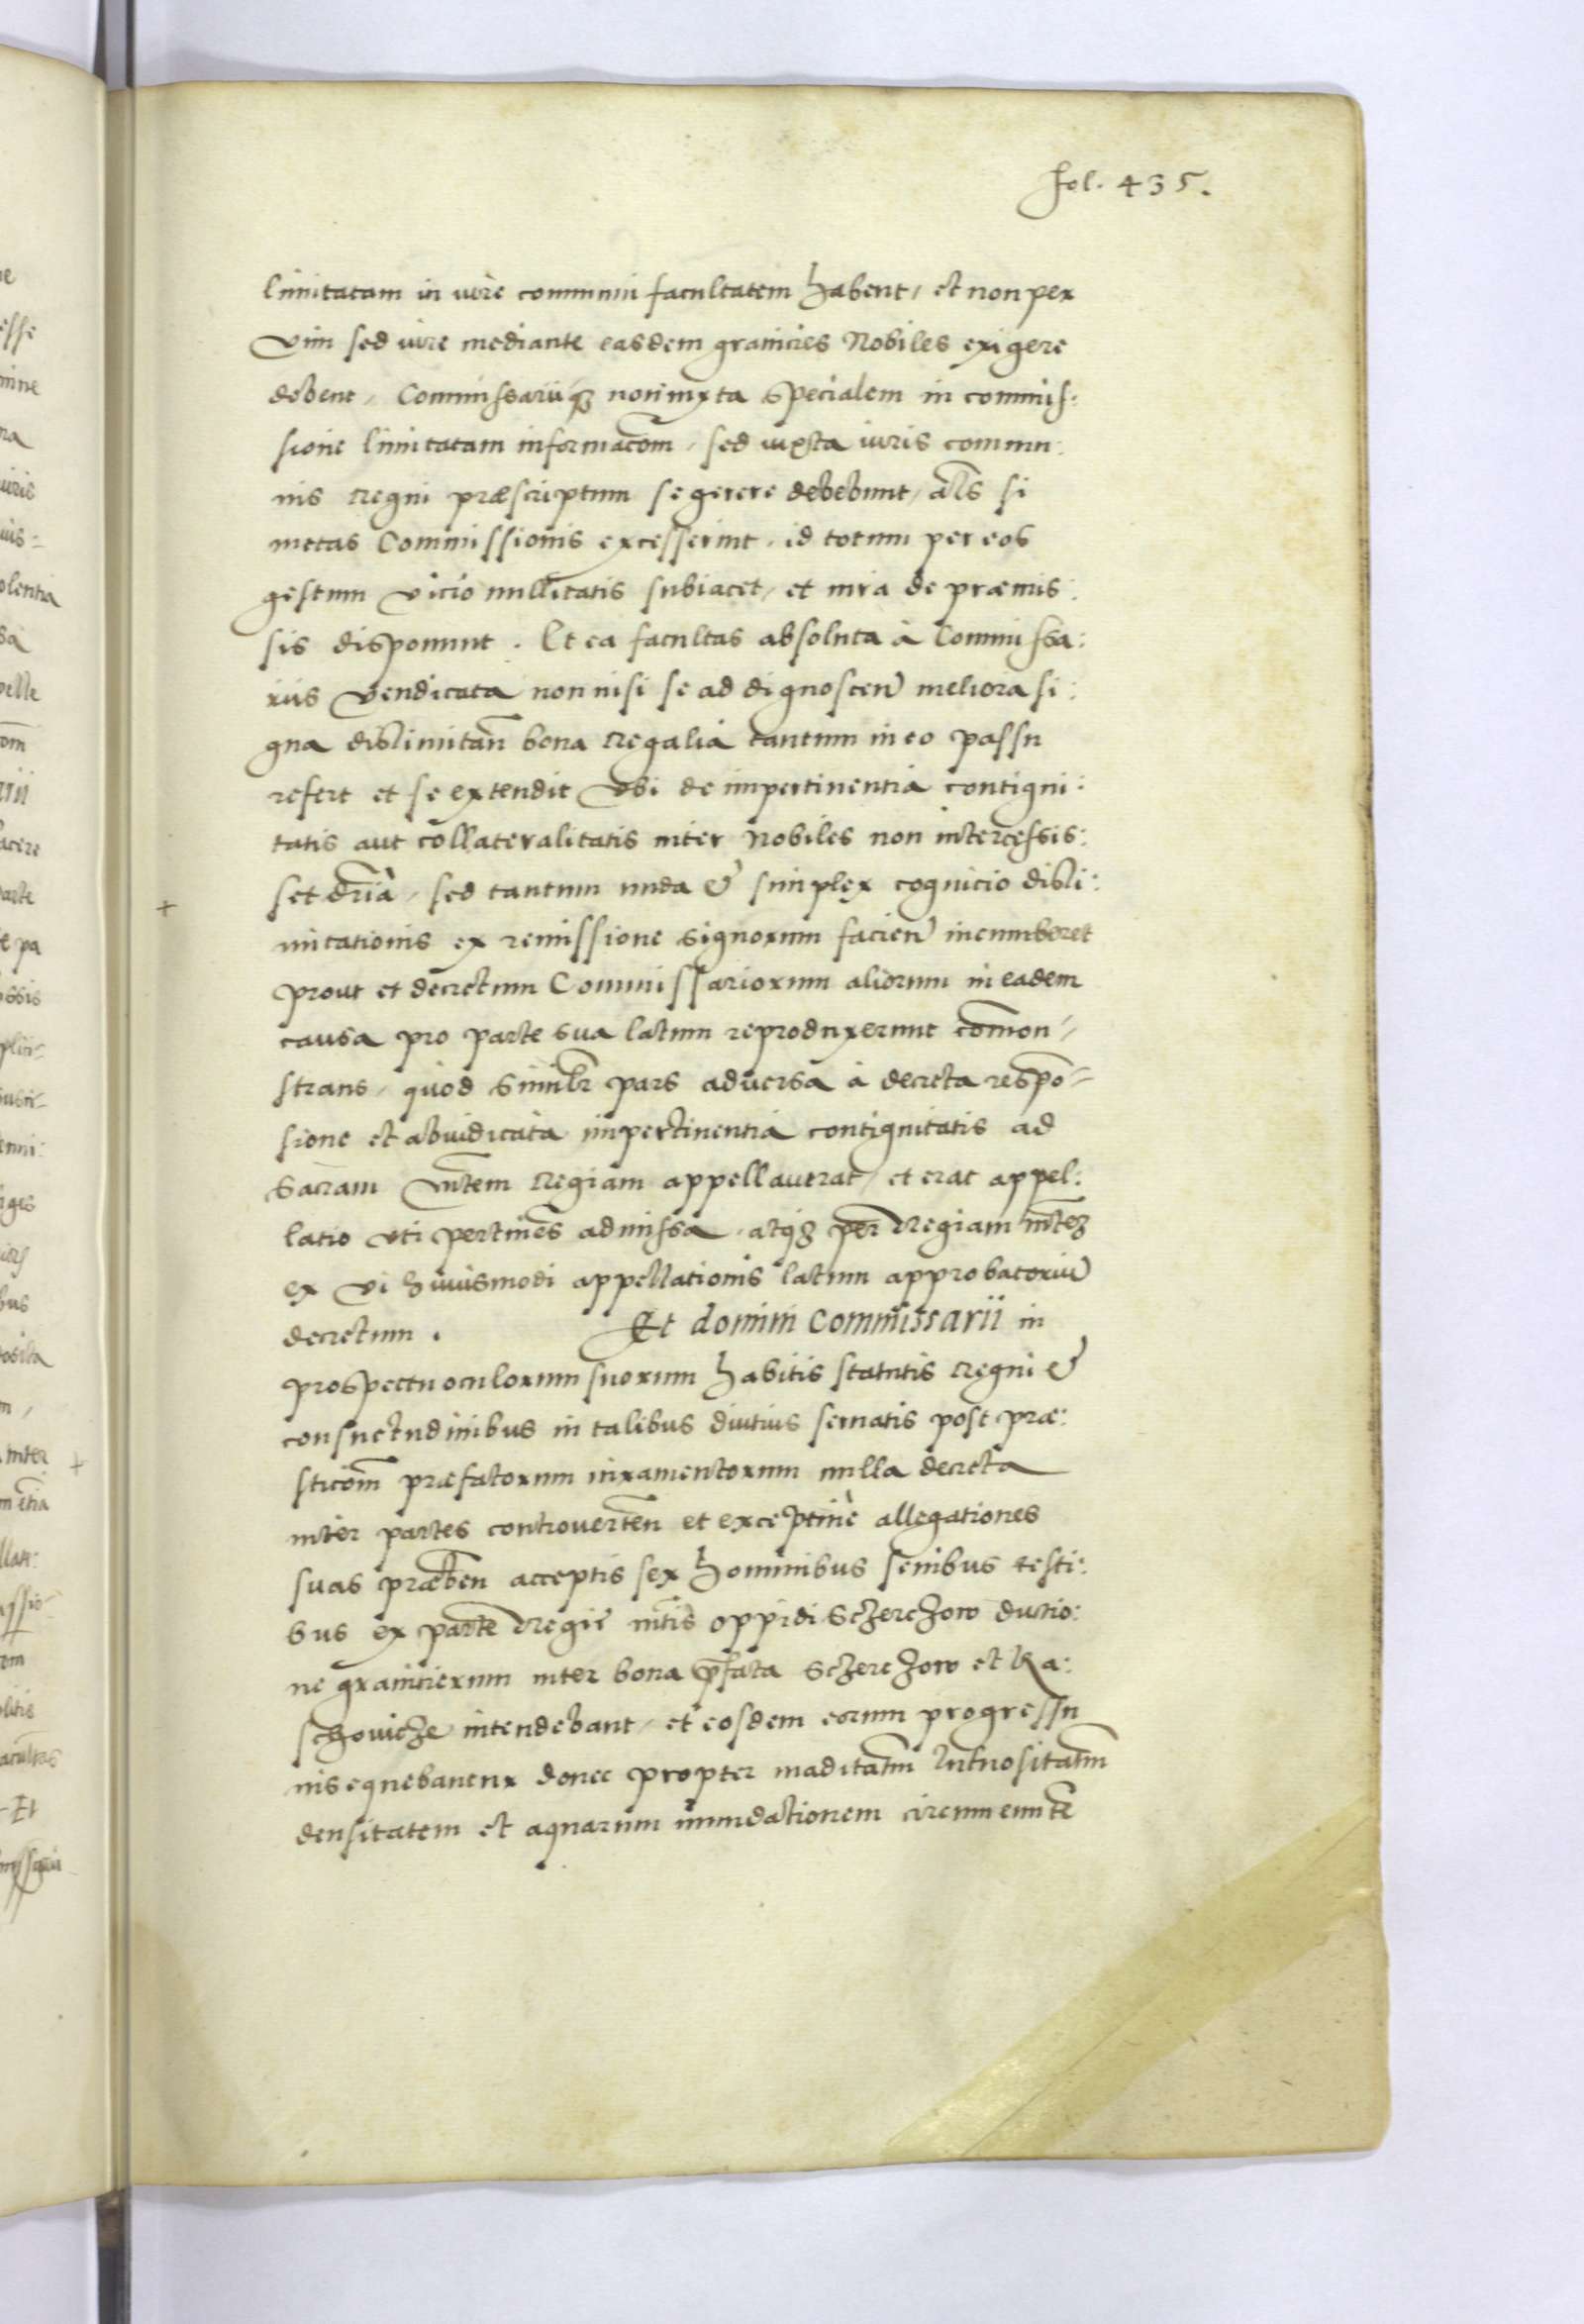 fol. 435.
limitatam in iure communi facultatem habent, et non per
vim sed iure mediante easdem granicies Nobiles exigere
debent, Commissariiq3 non iuxta specialem in commis:
sione limitatam informacõm, sed iuxta iuris commu:
nis regni præscriptum se gerere debebunt, als si
metas Commissionis excesserint, id totum per eos
gestum vicio nullitatis subiacet, et iura de præmis:
sis disponunt. Et ea facultas absoluta à Commissa:
riis vendicata non nisi se ad dignoscen meliora si:
gna dislimitan bona regalia tantum in eo passu
refert et se extendit vbi de impertinentia contigui:
tatis aut collateralitatis inter Nobiles non intercessis:
set dria, sed tantum nuda & simplex cognicio disli:
mitationis ex remissione signorum facien incumberet
prout et decretum Commissariorum aliorum in eadem
causa pro parte sua latum reproduxerunt comon-
strans, quod similr pars adversa à decreta respo-
sione et abiudicata impertinentia contiguitatis ad
Sacram Mtem Regiam appellauerat, et erat appel:
latio vti pertinẽs admissa, atq3 per Regiam Mte3
ex vi huiusmodi appellationis latum approbatoriu
decretum. Et domini Commissarii in
prospectu oculorum suorum habitis statutis regni &
consuetudinibus in talibus diutius seruatis post præ:
sticom præfatorum iuramentorum nulla decreta
inter partes controverten et exceptiue allegationes
suas præben acceptis sex hominibus senibus testi:
bus ex parte Regie Mtis oppidi Sczerczow ductio:
ne granicierum inter bona pfata Sczerczow et Ka:
schouicze intendebant, et eosdem eorum progressu
insequebantur donec propter maditatm lutuositatm
densitatem et aquarum inundationem circumeunte